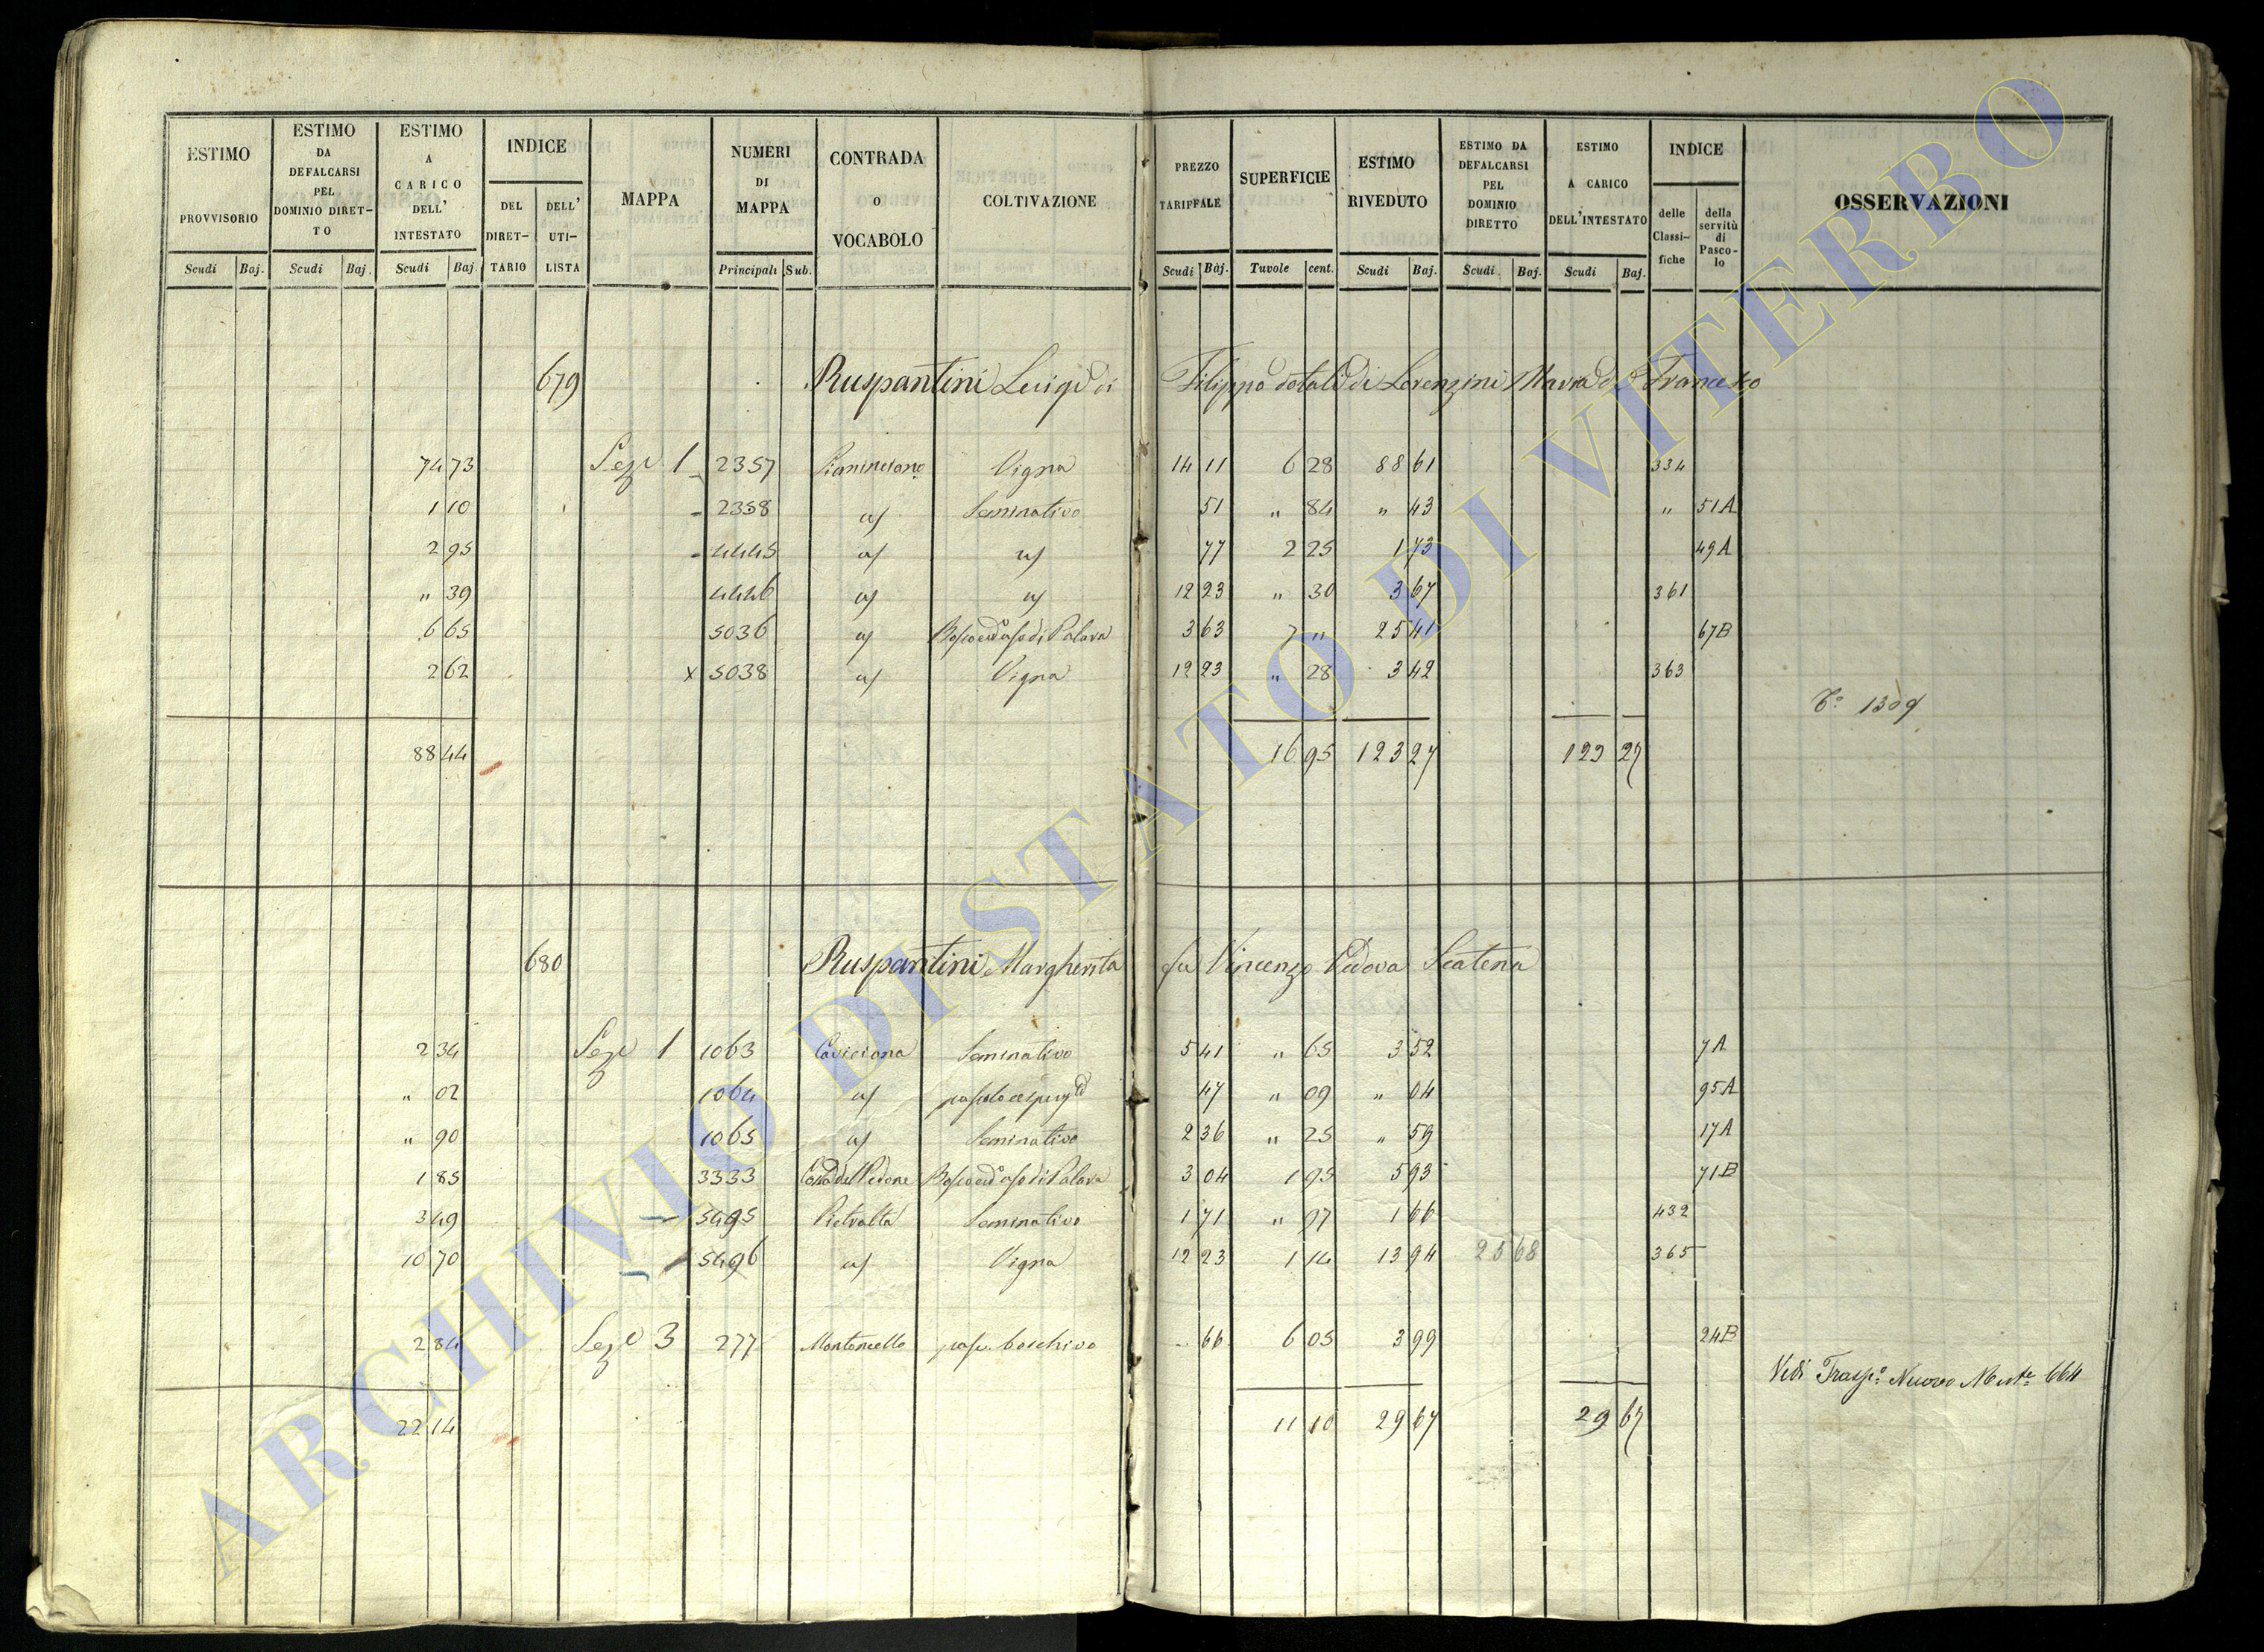 ESTIMO PROVVISORIO Scudi Baj.
ESTIMO DA DEFALCARSI PEL DOMINIO DIRET- TO Scudi Baj.
ESTIMO A CARICO DELL' INTESTATO Scudi Baj.
INDICE DEL DIRET- TARIO DELL' UTI- LISTA
MAPPA
NUMERI DI MAPPA Principali Sub.
CONTRADA O VOCABOLO
COLTIVAZIONE
PREZZO TARIFFALE Scudi Baj.
SUPERFICIE Tavole cent.
ESTIMO RIVEDUTO Scudi Baj.
ESTIMO DA DEFALCARSI PEL DOMINIO DIRETTO Scudi Baj.
ESTIMO A CARICO DELL'INTESTATO Scudi Baj.
INDICE delle Classi- fiche della servitù di Pasco- lo
OSSERVAZIONI
679 Ruspantini Luigi di Filippo dotali di Lorenzini Maria di Francesco
74 73 Sezе 1 2357 Piancione Vigna 14 11 6 28 88 61 334
1 10 2358 a/ Seminativo 51 " 84 " 43 " 51A
2 95 4445 a/ a/ 77 2 25 1 73 49A
" 39 4446 a/ a/ 12 23 " 30 3 67 361
6 65 5036 a/ 3 63 7 " 25 41 67B
2 62 x 5038 a/ Vigna 12 23 " 28 3 42 363
Tº 1309
88 44 16 95 123 27 123 27
680 Ruspantini Margherita fu Vincenzo Vedova Scatena
2 34 Seze 1 1063 Caviciana Seminativo 5 41 " 65 3 52 7A
" 02 1064 a/ 47 " 09 " 04 95A
" 90 1065 a/ Seminativo 2 36 " 25 " 59 17A
1 85 3333 3 04 1 95 5 93 71B
3 49 5495 Pietralta Seminativo 1 71 " 97 1 66 432
10 70 5496 a/ Vigna 12 23 1 14 13 94 25 68 365
2 84 Seze 3 277 Montoncello pasc. boschivo 66 6 05 3 99 24B
Vedi Trasp. Nuovo 664
22 14 11 10 29 67 29 67
ARCHIVIO DI STATO DI VITERBO